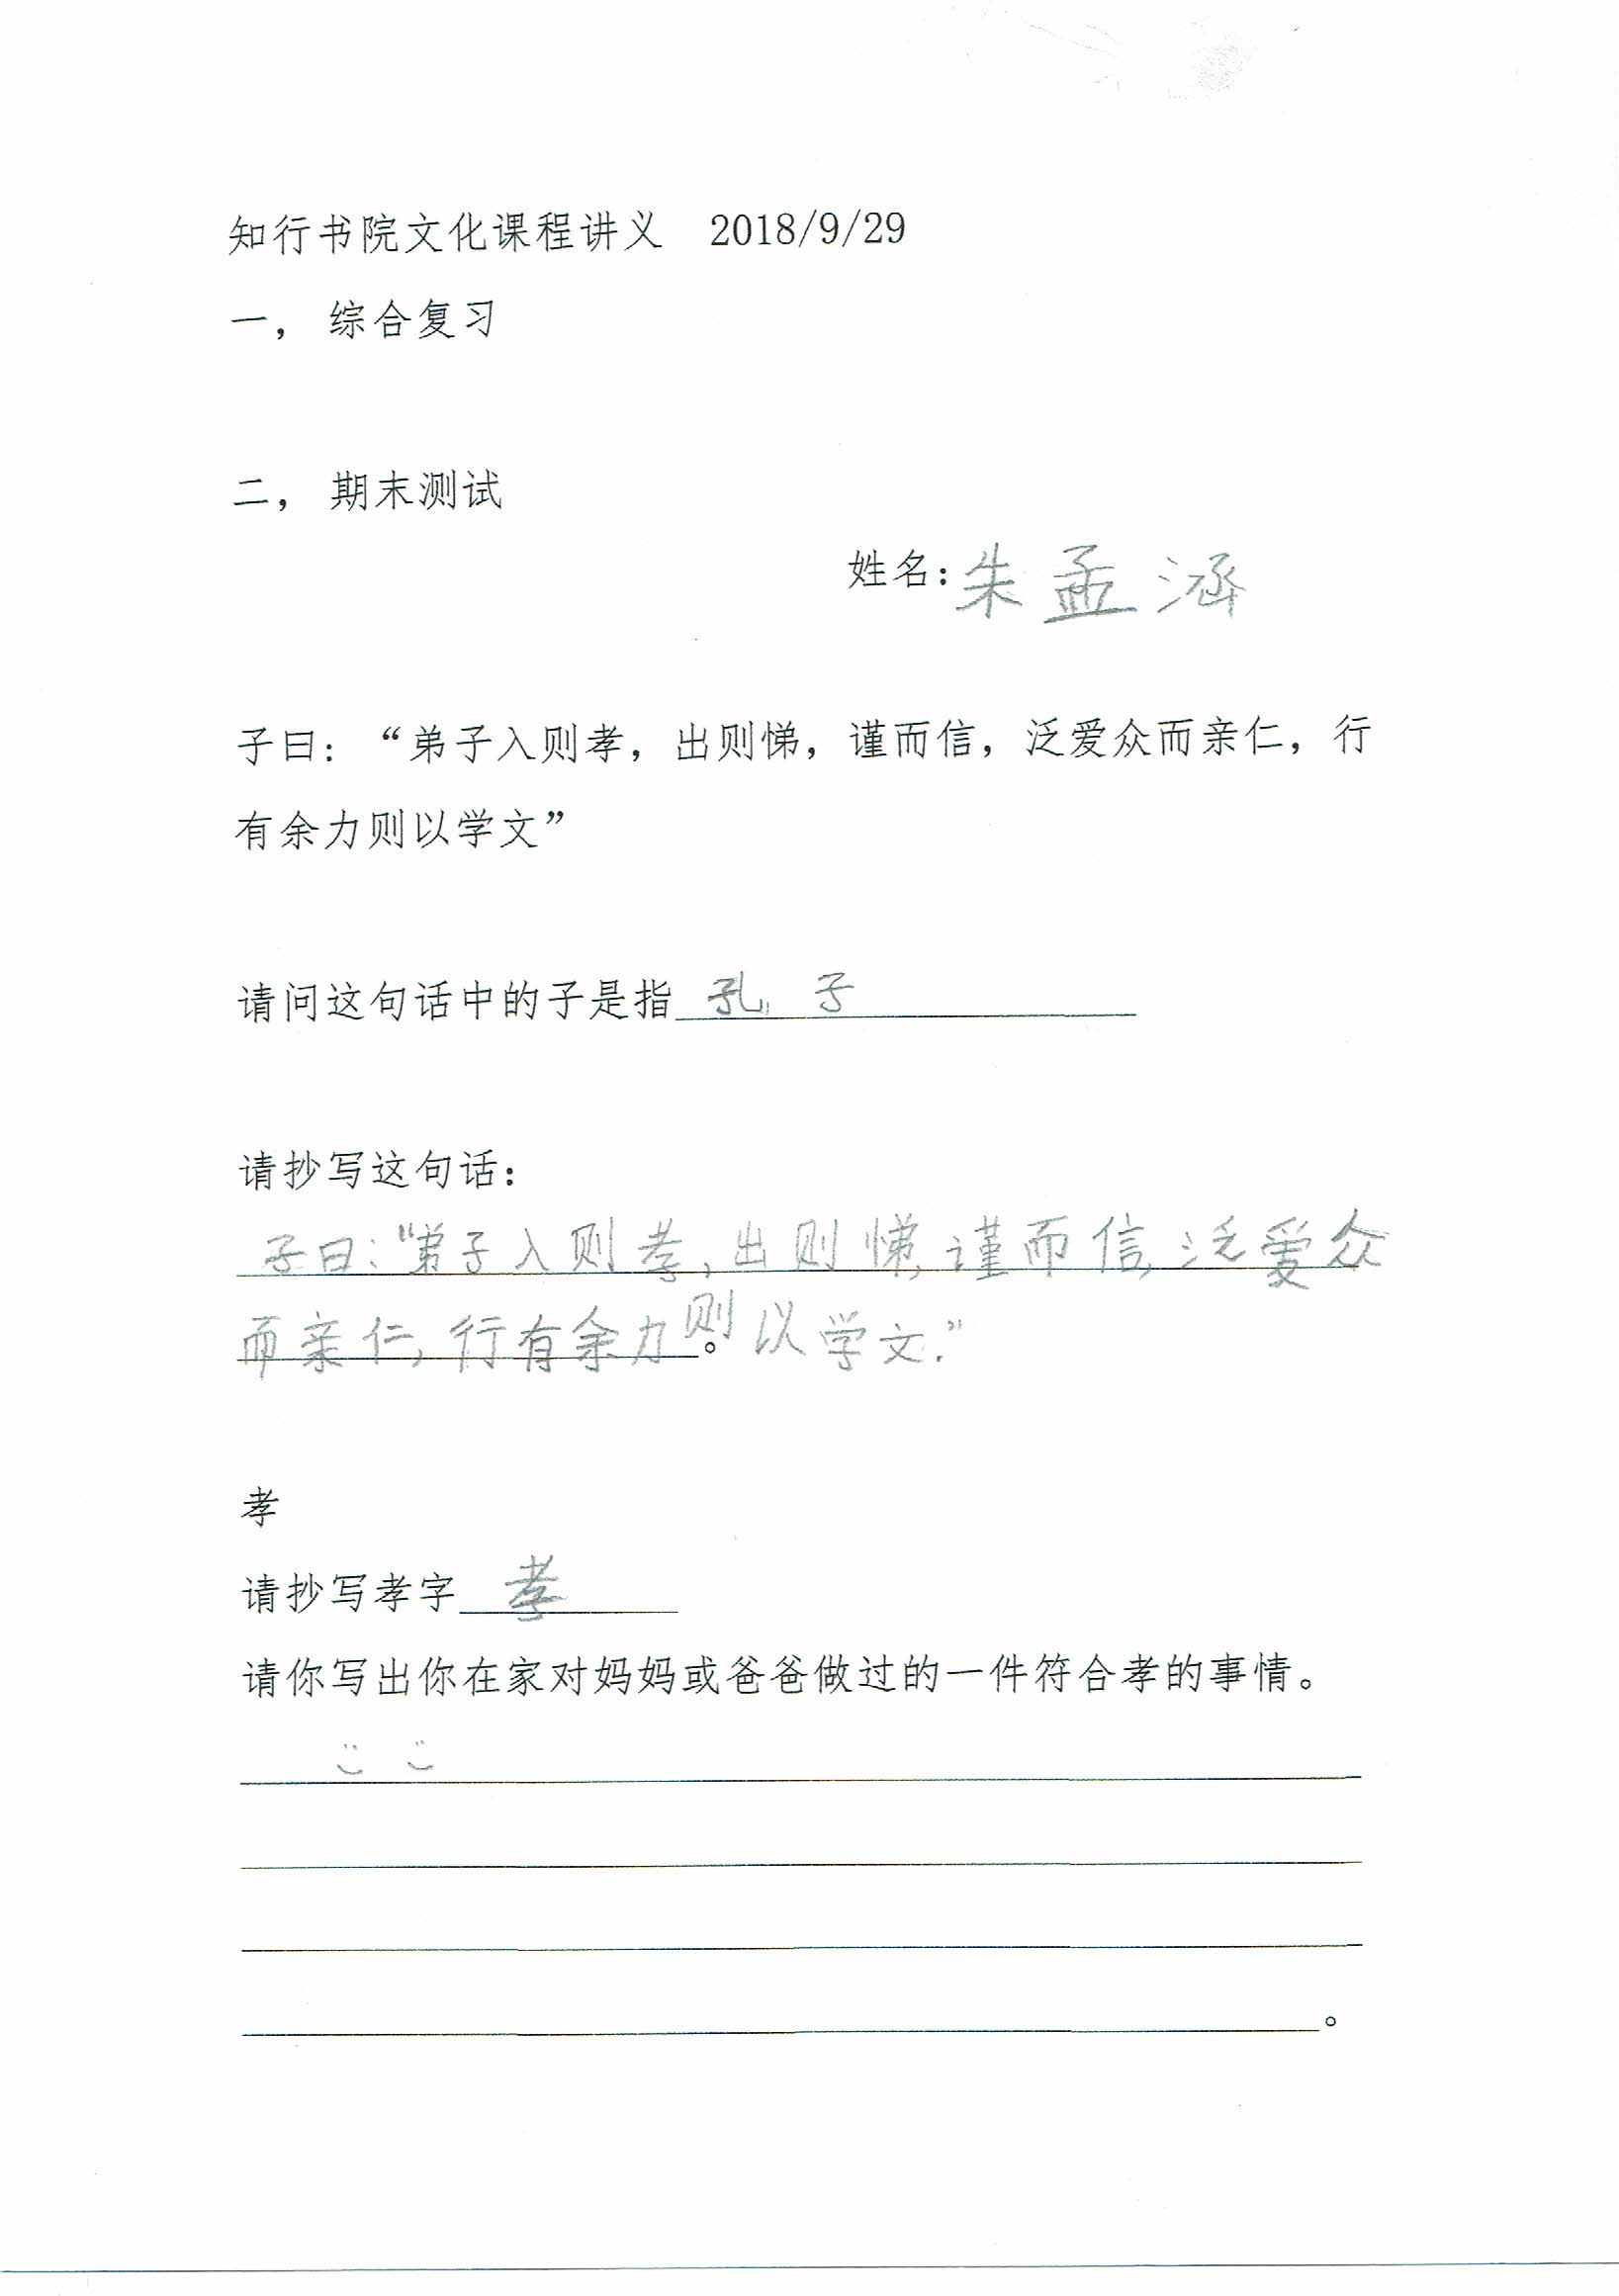 知行书院文化课程讲义 2018/9/29
一， 综合复习
二， 期末测试
姓名：朱孟涵
子曰：“弟子入则孝，出则悌，谨而信，泛爱众而亲仁，行
有余力则以学文”
请问这句话中的子是指 孔子
请抄写这句话：
子曰：“弟子入则孝，出则悌，谨而信，泛爱众
而亲仁，行有余力则。以学文.”
孝
请抄写孝字 孝
请你写出你在家对妈妈或爸爸做过的一件符合孝的事情。
。